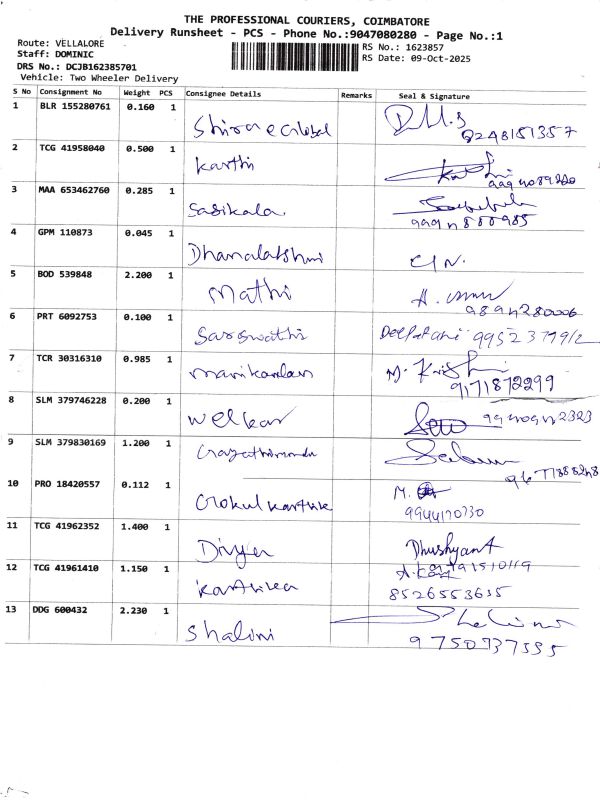 THE PROFESSIONAL COURIERS, COIMBATORE
Delivery Runsheet - PCS - Phone No.:9047080280 - Page No.:1
Route: VELLALORE
Staff: DOMINIC
DRS No.: DCJB162385701
Vehicle: Two Wheeler Delivery
RS No.: 1623857
RS Date: 09-Oct-2025
S No Consignment No Weight PCS Consignee Details Remarks Seal & Signature
1 BLR 155280761 0.160 1
8248151357
2 TCG 41958040 0.500 1 Karthi
3 MAA 653462760 0.285 1 Sasikala
4 GPM 110873 0.045 1 Dhanalakshmi
5 BOD 539848 2.200 1 Mathi
6 PRT 6092753 0.100 1 Saraswathi
7 TCR 30316310 0.985 1 Manikandan M. Krish
9171872299
8 SLM 379746228 0.200 1 Welkar
9 SLM 379830169 1.200 1
10 PRO 18420557 0.112 1 Gokul Karthik M.
9944170730
11 TCG 41962352 1.400 1 Divya Dhushyant
12 TCG 41961410 1.150 1 Karthika
8526553635
13 DDG 600432 2.230 1 Shalini Shalini
9750737535